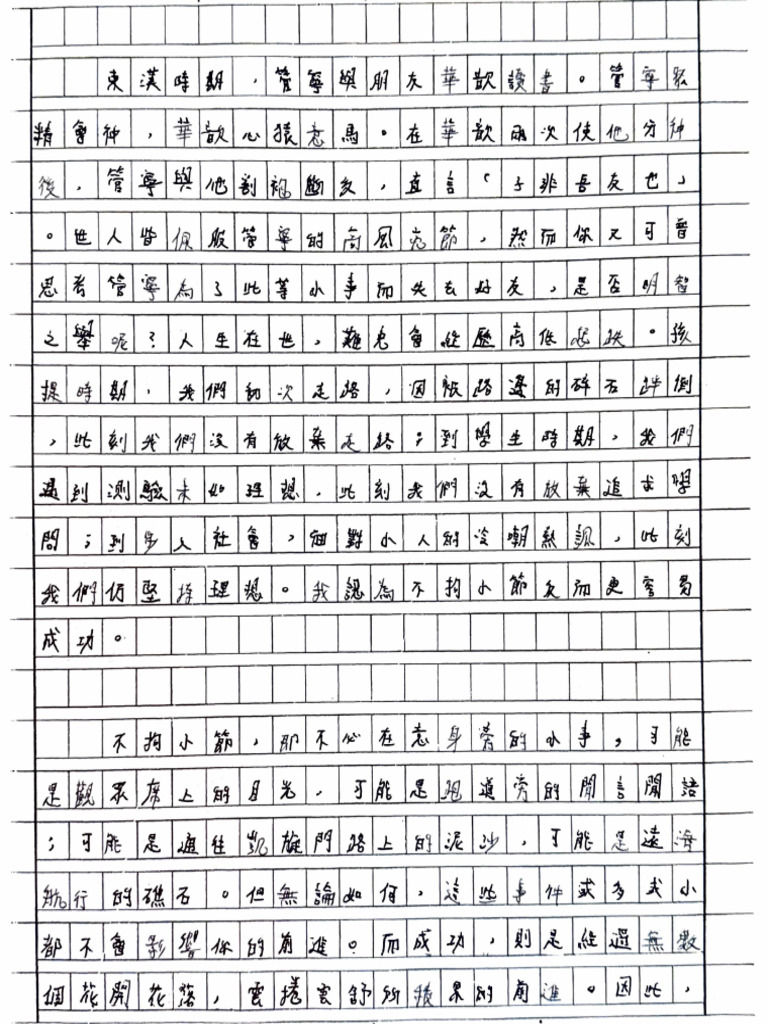 東漢時期，管寧與朋友華歆讀書。管寧聚
精會神，華歆心猿意馬。在華歆兩次使他分神
後，管寧與他割袍斷交，直言「子非吾友也」
。世人皆佩服管寧的高風亮節，然而你又可曾
思考管寧為了此等小事而失去好友，是否明智
之舉呢？人生在世，難免會經歷高低起跌。孩
提時期，我們初次走路，因被路邊的碎石絆倒
，此刻我們沒有放棄走路；到學生時期，我們
遇到測驗未如理想，此刻我們沒有放棄追求學
問；到步入社會，面對小人的冷嘲熱諷，此刻
我們仍堅持理想。我認為不拘小節反而更容易
成功。
不拘小節，即不必在意身旁的小事，可能
是觀眾席上的目光，可能是跑道旁的閒言閒語
；可能是通往凱旋門路上的泥沙，可能是遠海
航行的礁石。但無論如何，這些事件或多或小
都不會影響你的前進。而成功，則是經過無數
個花開花落，雲捲雲舒所積累的前進。因此，